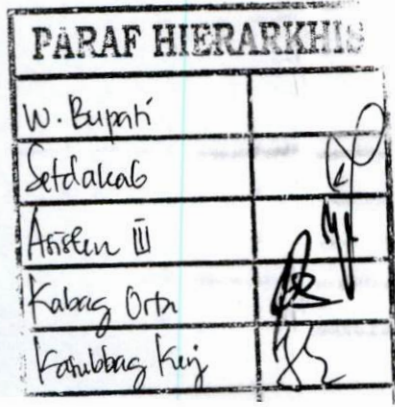 PARAF HIERARKHIS
W. Bupati
Setdakab
Asisten III
Kabag Orta
Kasubbag Kinj